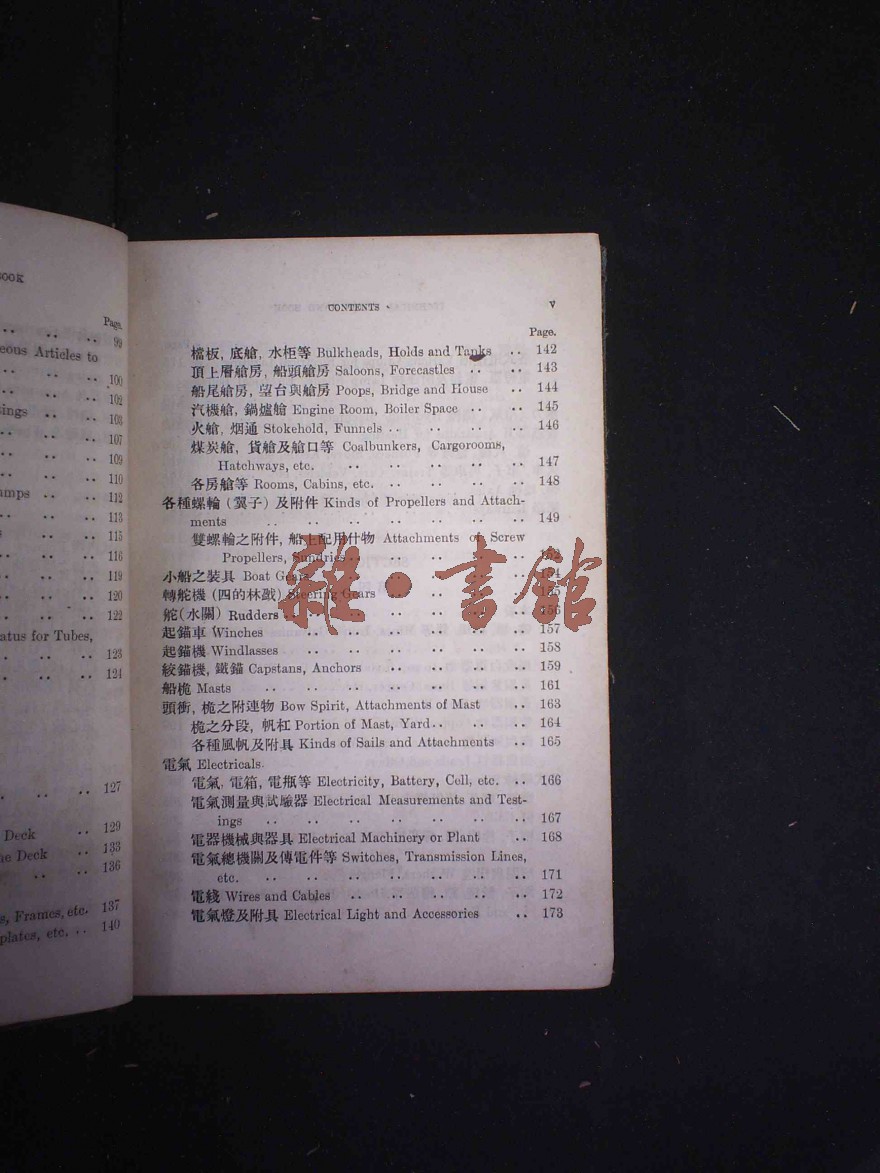 BOOK
Page.
.. .. .. 99
eous Articles to
.. .. .. 100
.. .. .. 102
sings .. .. 103
.. .. .. 107
.. .. .. 109
.. .. .. 110
umps .. .. 112
.. .. .. 113
s .. .. 115
.. .. .. 116
.. .. .. 119
.. .. .. 120
.. .. .. 122
atus for Tubes,
.. .. .. 123
.. .. .. 124
.. .. .. 127
Deck .. 129
he Deck .. 133
.. .. 136
s, Frames, etc. 137
plates, etc. .. 140
CONTENTS V
Page.
檔板, 底艙, 水柜等 Bulkheads, Holds and Tanks .. 142
頂上層艙房, 船頭艙房 Saloons, Forecastles .. .. 143
船尾艙房, 望台與艙房 Poops, Bridge and House .. 144
汽機艙, 鍋爐艙 Engine Room, Boiler Space .. .. 145
火艙, 烟通 Stokehold, Funnels .. .. .. .. 146
煤炭艙, 貨艙及艙口等 Coalbunkers, Cargorooms,
Hatchways, etc. .. .. .. .. 147
各房艙等 Rooms, Cabins, etc. .. .. .. .. 148
各種螺輪 (翼子) 及附件 Kinds of Propellers and Attach-
ments .. .. .. .. .. .. 149
雙螺輪之附件, 船上配用什物 Attachments of Screw
Propellers, Sundries .. .. .. ..
小船之裝具 Boat Gears .. .. .. ..
轉舵機 (四的林戤) Steering Gears .. .. .. 155
舵 (水關) Rudders .. .. .. .. .. 156
起錨車 Winches .. .. .. .. .. 157
起錨機 Windlasses .. .. .. .. .. 158
絞錨機, 鐵錨 Capstans, Anchors .. .. .. 159
船桅 Masts .. .. .. .. .. .. 161
頭衝, 桅之附連物 Bow Spirit, Attachments of Mast .. 163
桅之分段, 帆杠 Portion of Mast, Yard .. .. .. 164
各種風帆及附具 Kinds of Sails and Attachments .. 165
電氣 Electricals.
電氣, 電箱, 電瓶等 Electricity, Battery, Cell, etc. .. 166
電氣測量與試驗器 Electrical Measurements and Test-
ings .. .. .. .. .. .. 167
電器機械與器具 Electrical Machinery or Plant .. 168
電氣總機關及傳電件等 Switches, Transmission Lines,
etc. .. .. .. .. .. .. 171
電綫 Wires and Cables .. .. .. .. .. 172
電氣燈及附具 Electrical Light and Accessories .. 173
雜·書館